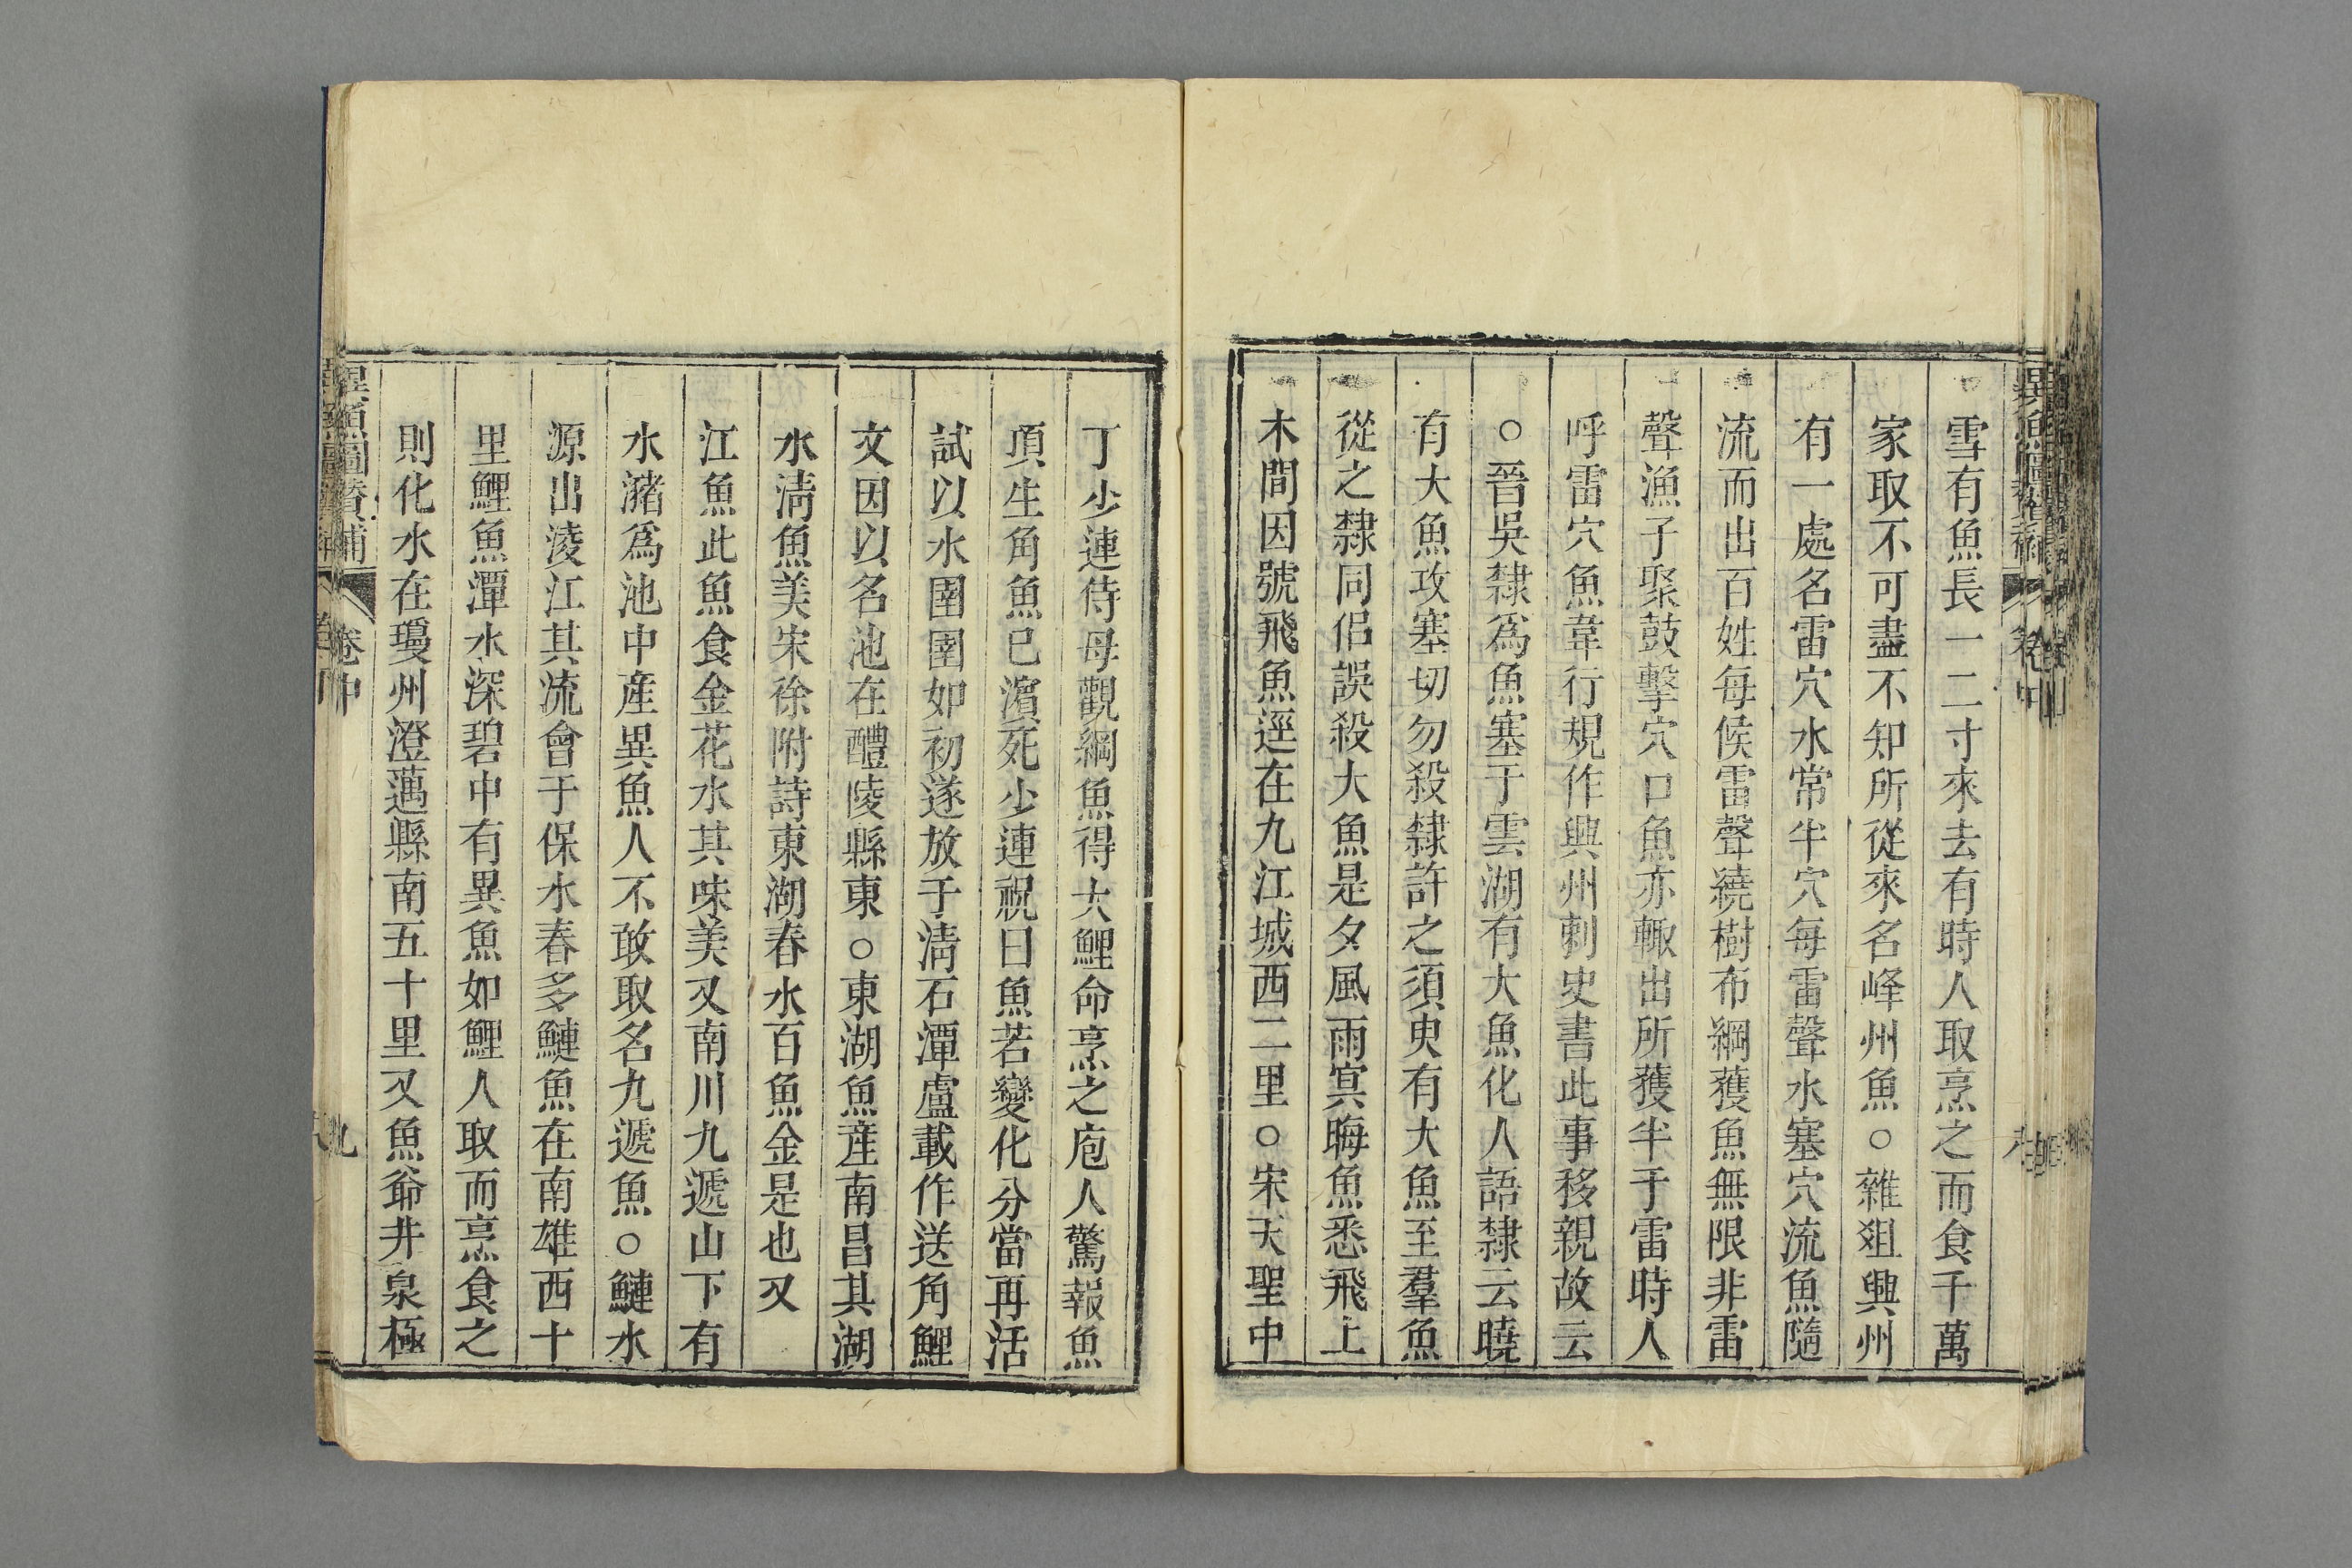 雪有魚長一二寸來去有時人取烹之而食千萬
家取不可盡不知所從來名峰州魚○雜俎興州
有一處名雷穴水常半穴每雷聲水塞穴流魚隨
流而出百姓每候雷聲繞樹布綱獲魚無限非雷
聲漁子聚鼓擊穴口魚亦輙出所獲半于雷時人
呼雷穴魚韋行規作興州刺史書此事移親故云
○晉吳隸爲魚塞于雲湖有大魚化人語隸云曉
有大魚攻塞切勿殺隸許之須臾有大魚至羣魚
從之隸同侶誤殺大魚是夕風雨寞晦魚悉飛上
木間因號飛魚逕在九江城西二里○宋天聖中
丁少連侍母觀綱魚得大鯉命烹之庖人驚報魚
項生角魚巳濵死少連祝曰魚若變化分當再活
試以水圉圉如初遂放于淸石潭盧載作送角鯉
文因以名池在醴陵縣東○東湖魚産南昌其湖
水淸魚美宋徐附詩東湖春水百魚金是也又
江魚此魚食金花水其味美又南川九遞山下有
水潴爲池中産異魚人不敢取名九遞魚○鰱水
源出淩江其流會于保水春多鰱魚在南雄西十
里鯉魚潭水深碧中有異魚如鯉人取而烹食之
則化水在瓊州澄薖縣南五十里又魚爺井泉極
異魚圖贊補
卷中
九